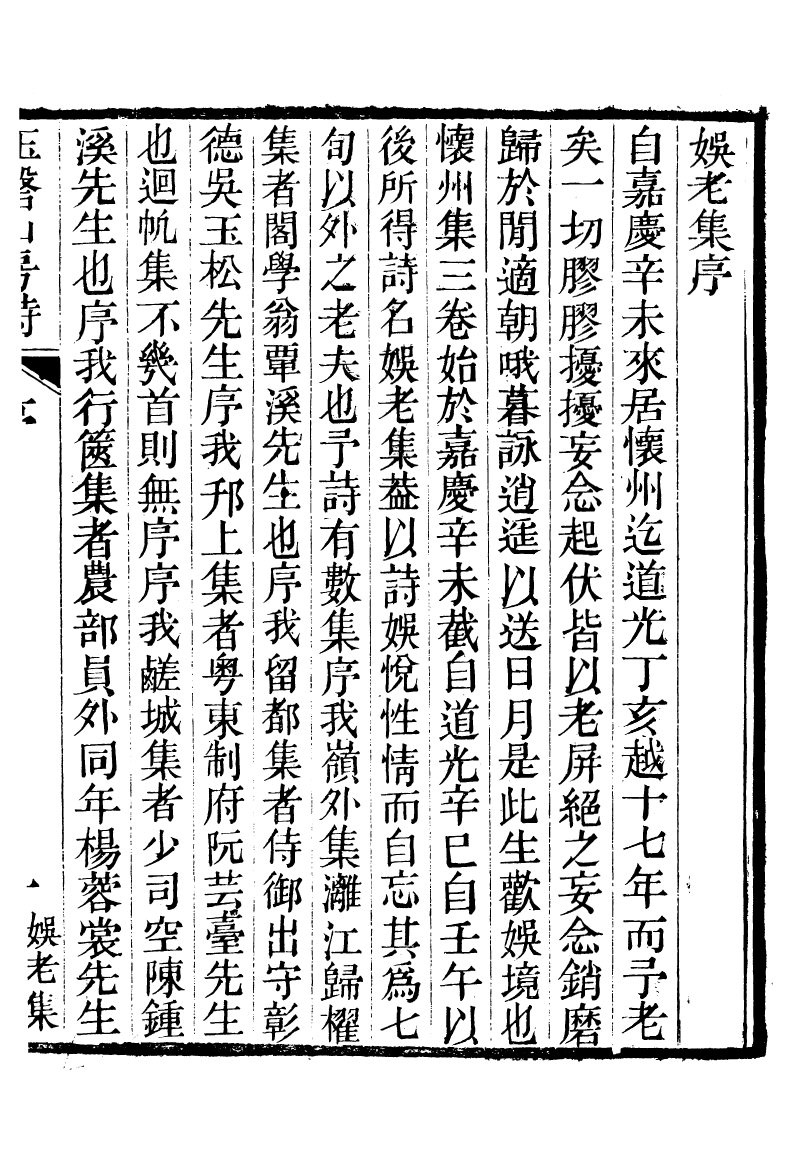 娛老集序
自嘉慶辛未來居懷州迄道光丁亥越十七年而予老
矣一切膠膠擾擾妄念起伏皆以老屏絕之妄念銷磨
歸於閒適朝哦暮詠逍遙以送日月是此生歡娛境也
懷州集三卷始於嘉慶辛未截自道光辛巳自壬午以
後所得詩名娛老集葢以詩娛悅性情而自忘其爲七
旬以外之老夫也予詩有數集序我嶺外集灕江歸櫂
集者閣學翁覃溪先生也序我留都集者侍御出守彰
德吳玉松先生序我邗上集者粵東制府阮芸臺先生
也迴帆集不幾首則無序序我鹺城集者少司空陳鍾
溪先生也序我行篋集者農部員外同年楊蓉裳先生
玉磬山房詩
一 娛老集